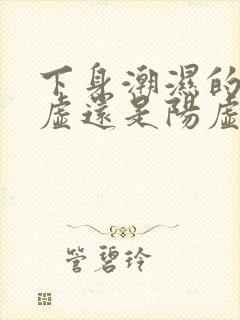 下身潮濕的
虛還是陽虛
管碧玲